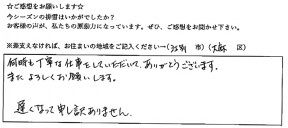 ☆ご感想をお願いします☆
今シーズンの排雪はいかがでしたか？
お客様の声が、私たちの原動力になっています。ぜひ、ご感想をお聞かせ下さい。
※差支えなければ、お住まいの地域をご記入ください→(江別 市)( 区)
何時も丁寧な仕事をしていただいて、ありがとうございます。
またよろしくお願いします。
遅くなって申し訳ありません。